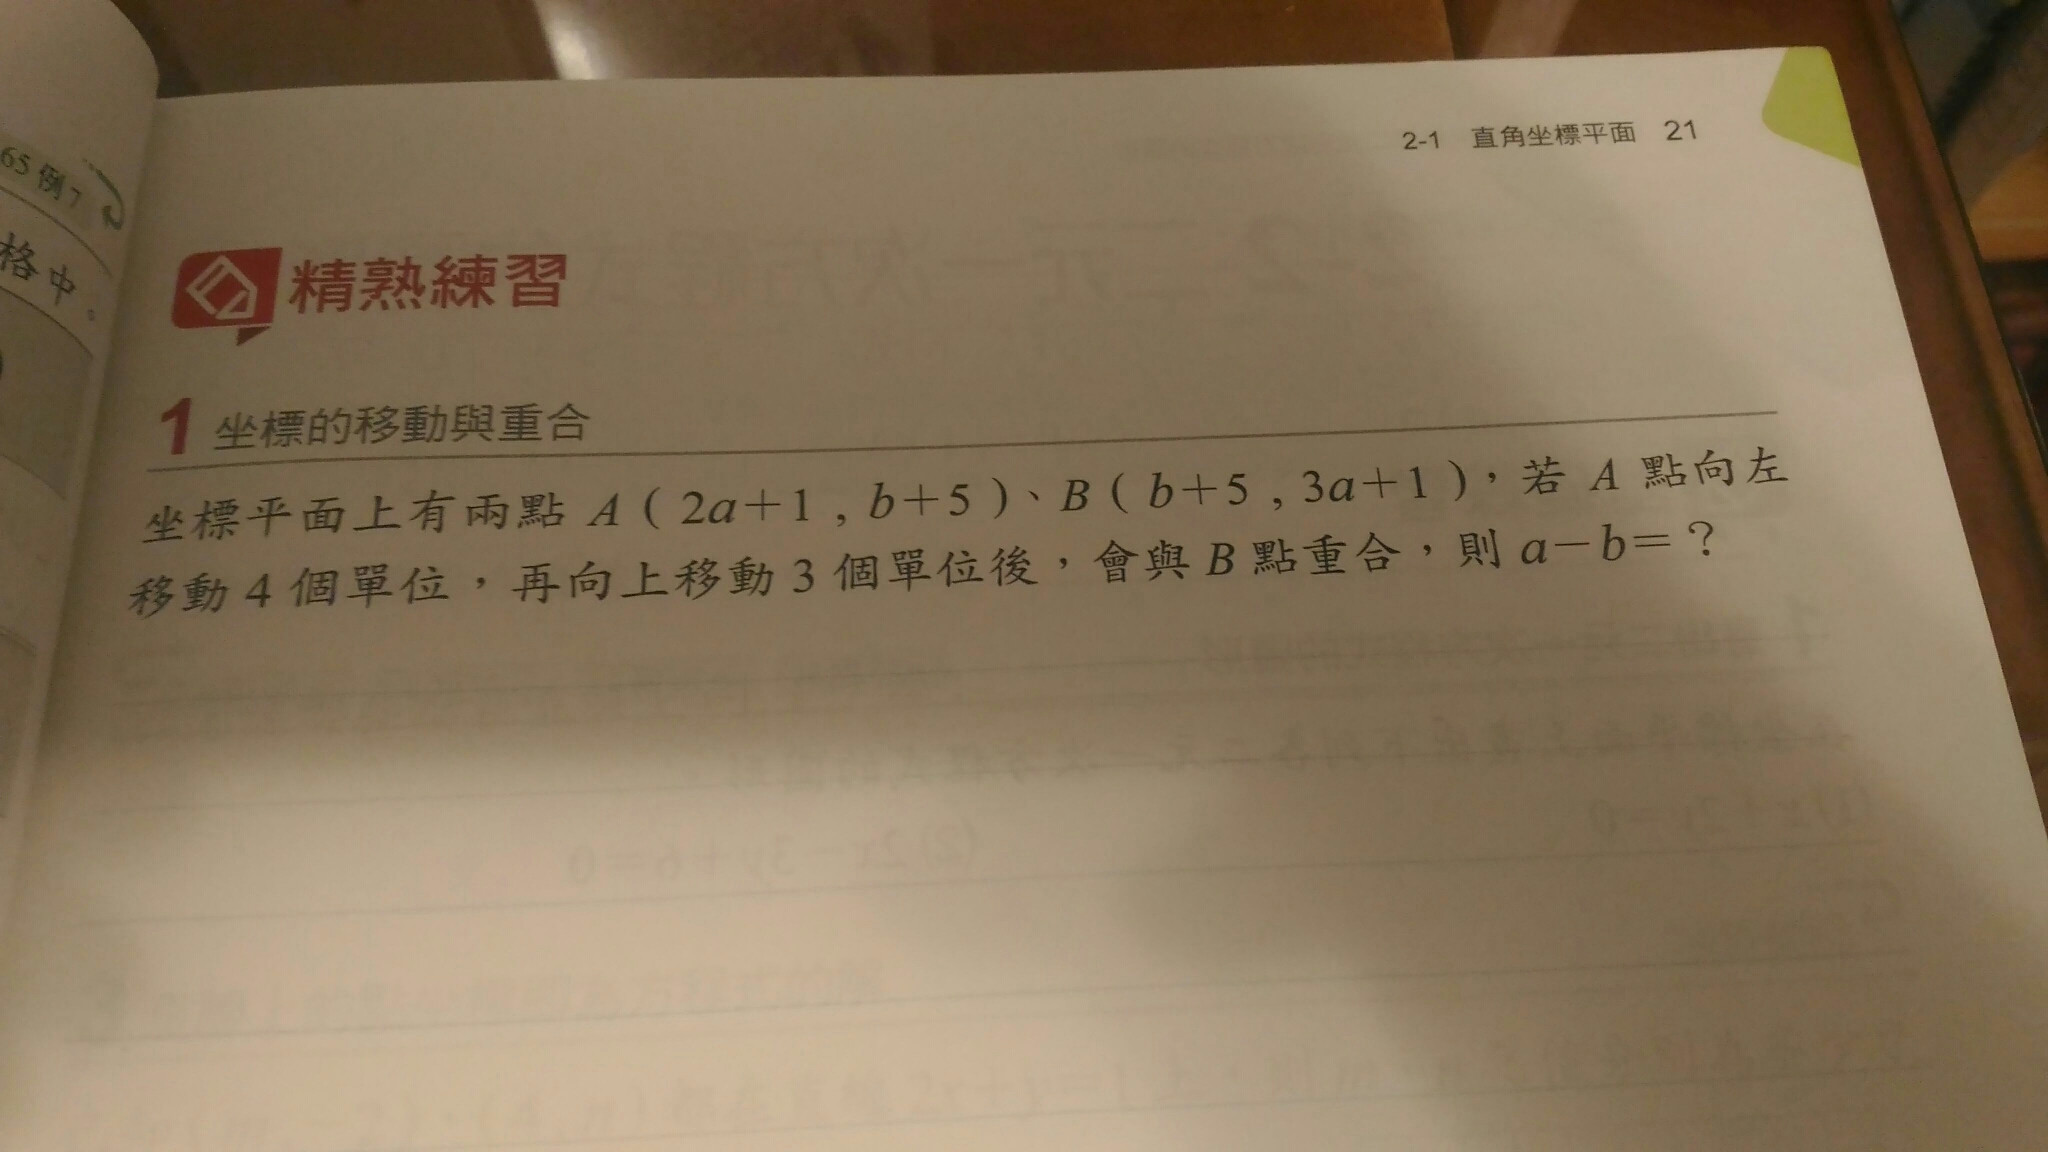 65 例7
格中。
2-1 直角坐標平面 21
精熟練習
1 坐標的移動與重合
坐標平面上有兩點 A ( 2a+1 , b+5 )、B ( b+5 , 3a+1 )，若 A 點向左
移動 4 個單位，再向上移動 3 個單位後，會與 B 點重合，則 a－b=？